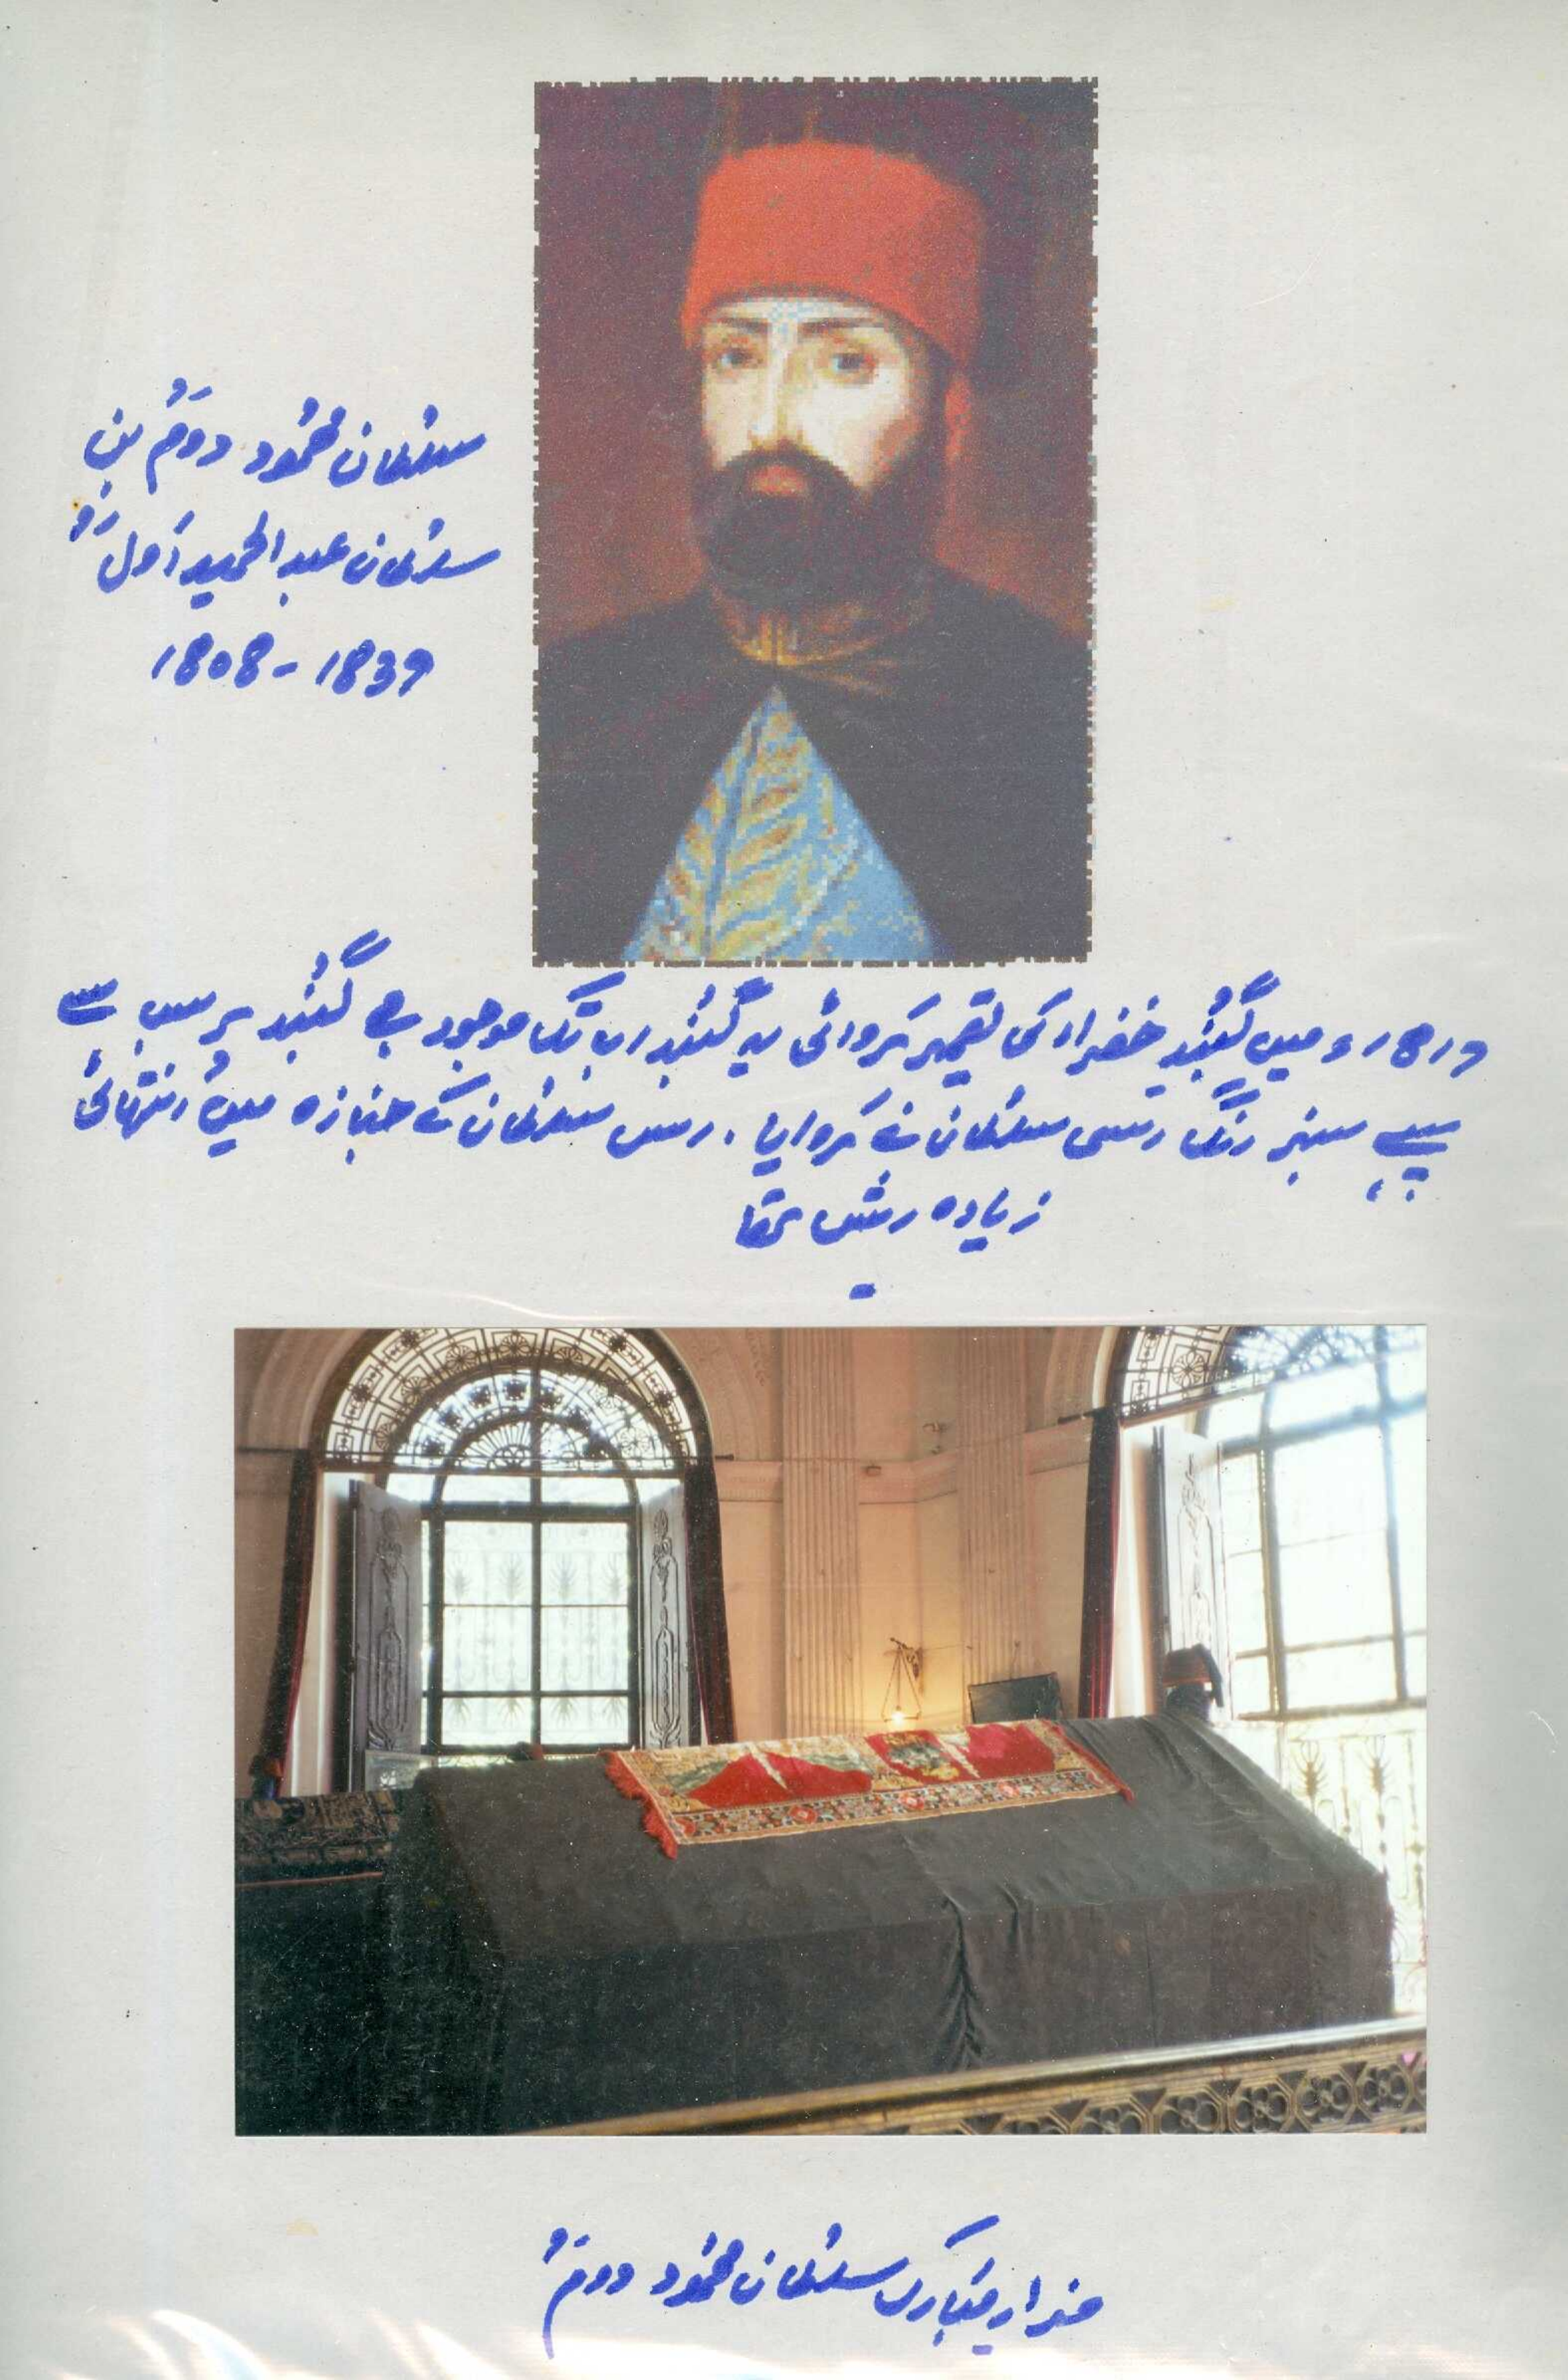 سلطان محمود دومؒ بن
سلطان عبدالحمید اولؒ
1808-1839
1819ء میں گنبدِ خضراء کی تعمیر کروائی یہ گنبد اب تک موجود ہے گنبد پر سب سے
پہلے سبز رنگ اسی سلطان نے کروایا. اس سلطان کے جنازہ میں انتہائی
زیادہ رش تھا
مزار مبارک سلطان محمود دومؒ